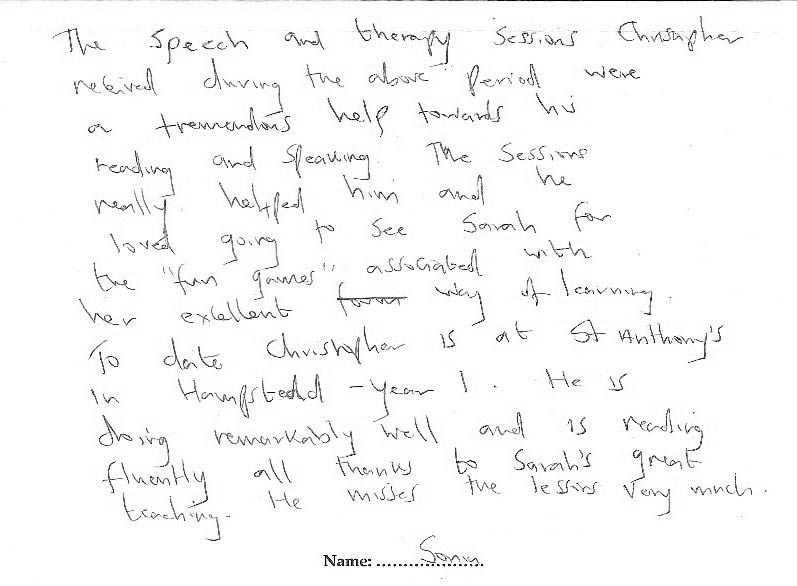 The Speech and therapy Sessions Christopher
received during the above period were
a tremendous help towards his
reading and speaking. The Sessions
really helped him and he
loved going to see Sarah for
the "fun games" associated with
her excellent form way of learning.
To date Christopher is at St Anthony's
In Hampstead - year 1. He is
doing remarkably well and is reading
fluently all thanks to Sarah's great
teaching. He misses the lessons very much.
Name: ..... Sonia.